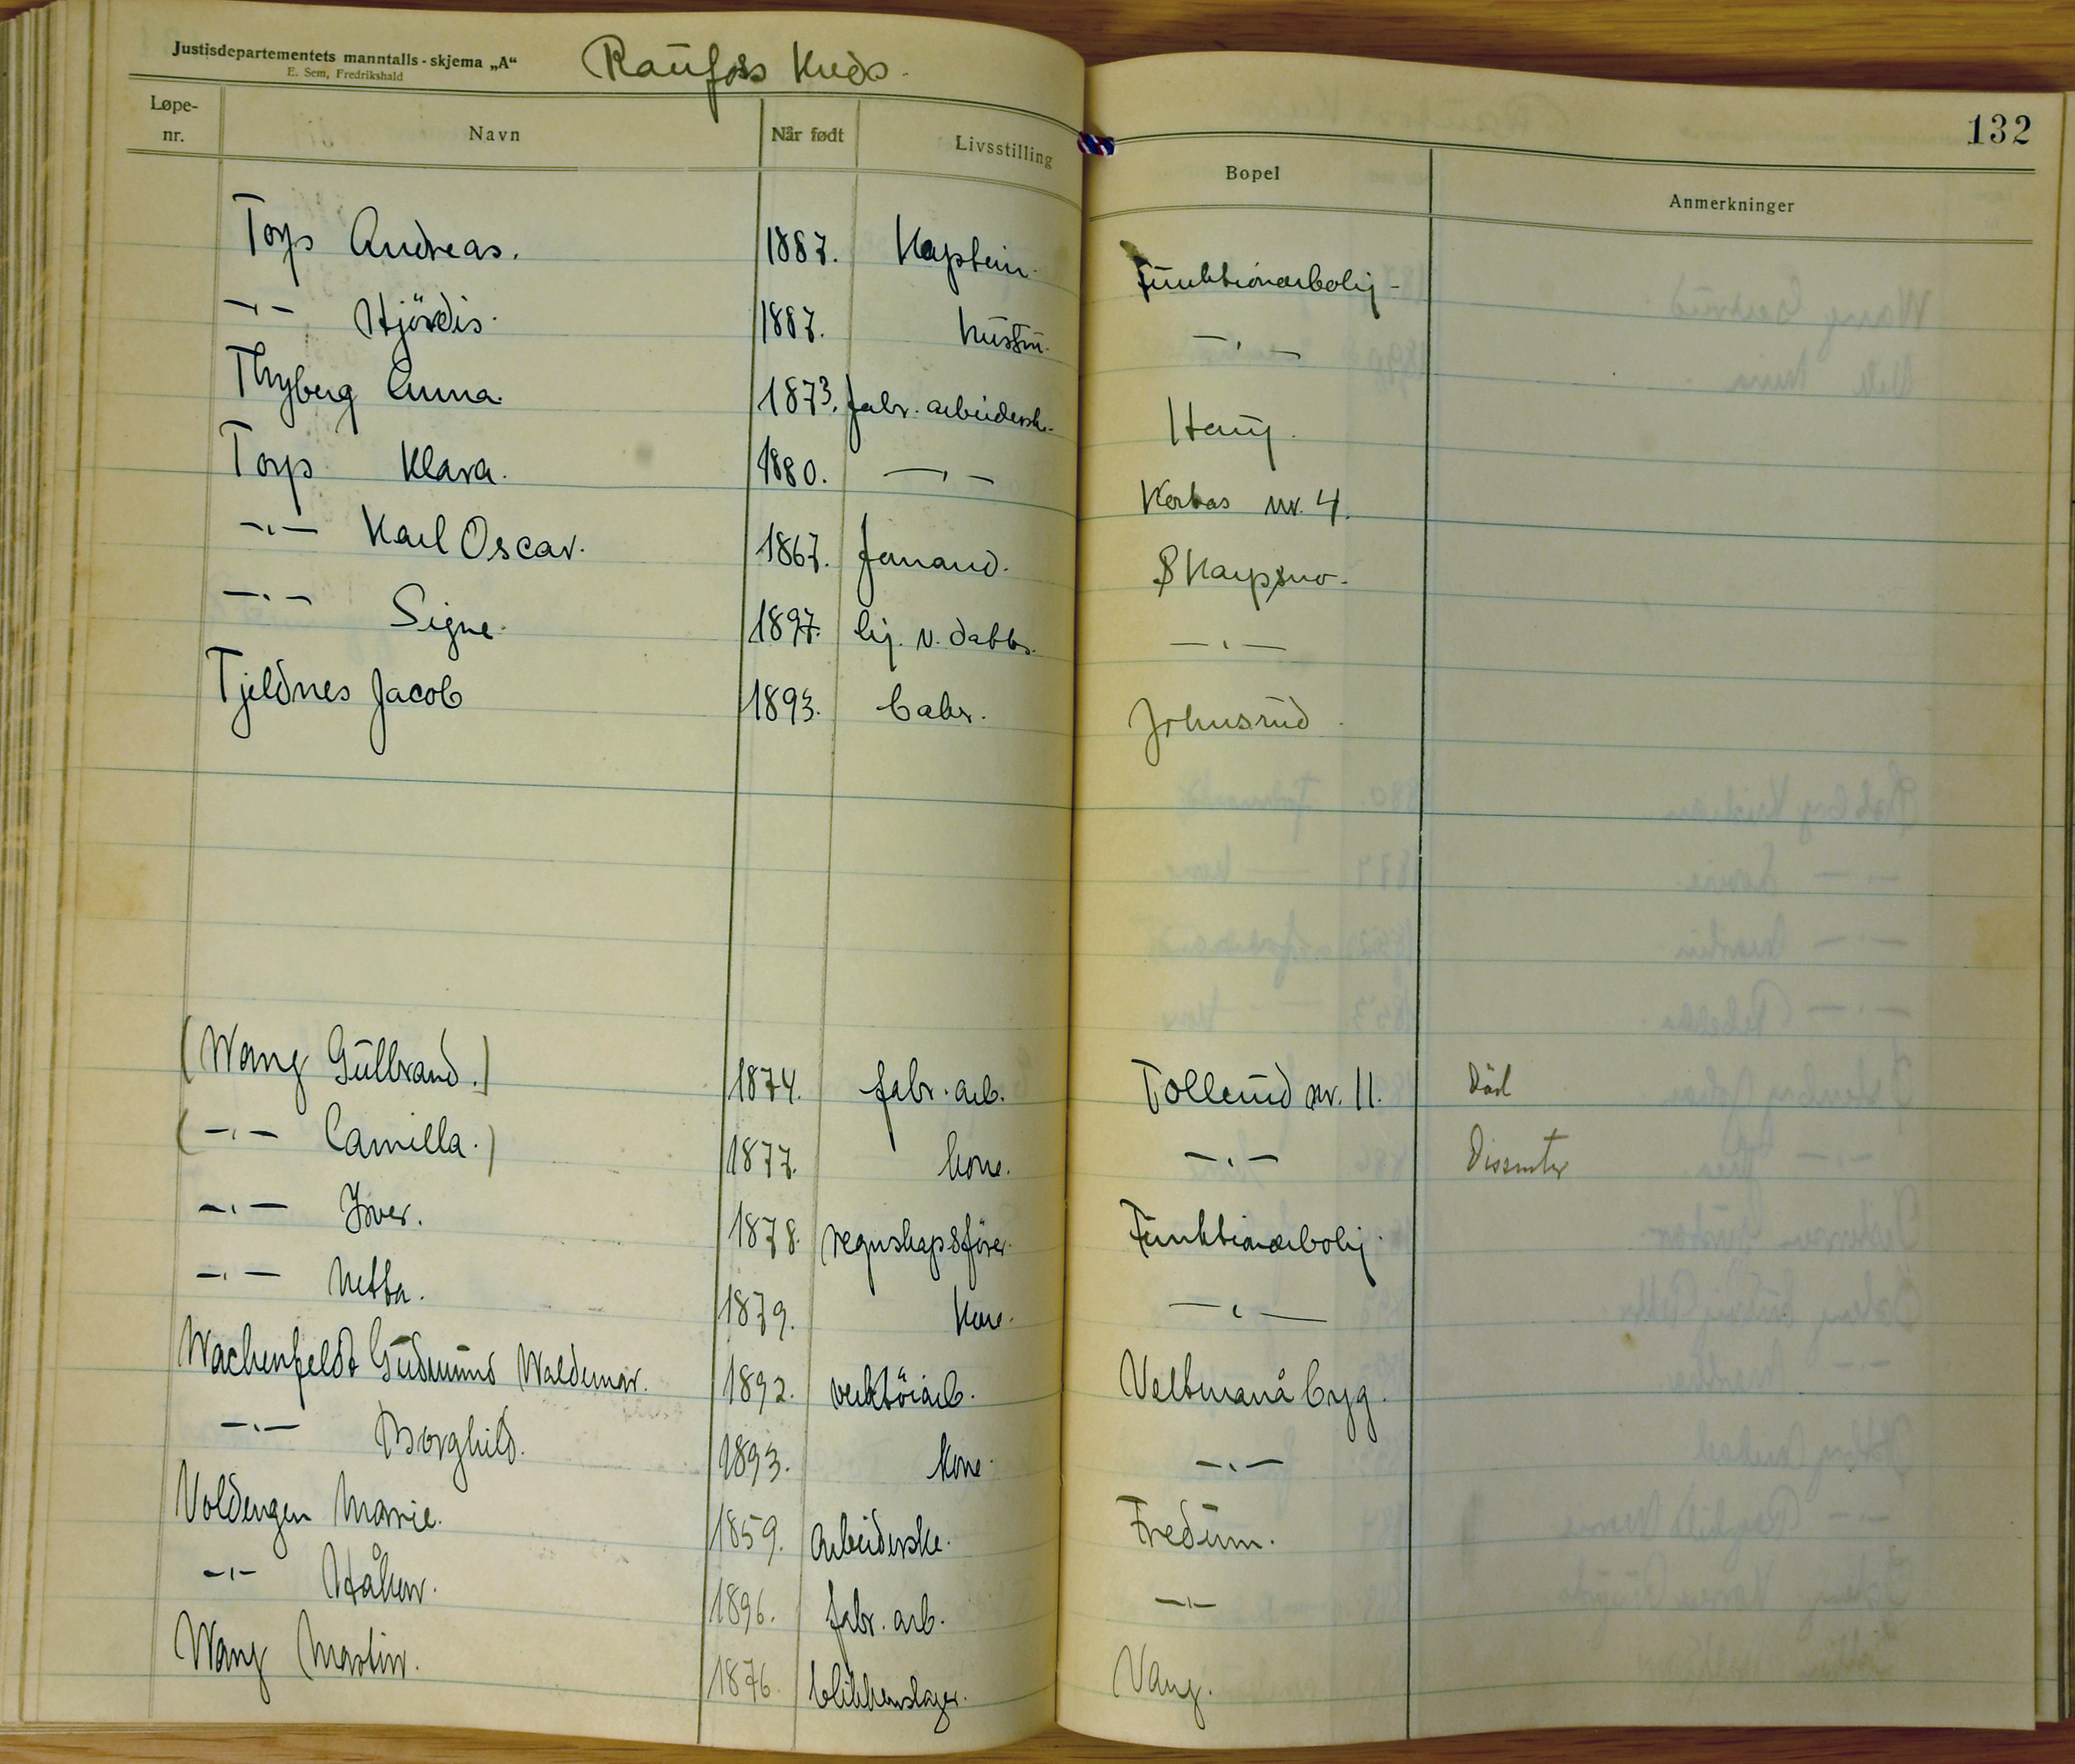 Justisdepartementets manntalls-skjema „A“ Raufoss Kreds.
E. Sem, Fredrikshald
132
Løpe-nr. Navn Når født Livsstilling Bopel Anmerkninger
Torp Andreas. 1887. Kaptein. Funktionærbolig -
—"— Hjördis. 1887. hustru. —"—
Thyberg Anna. 1873. fabr. arbeiderske. Haug.
Torp Klara. 1880. —"— Korbas nr. 4.
—"— Karl Oscar. 1867. formand. Skarpsno.
—"— Signe. 1897. hj. v. datter. —"—
Tjeldnes Jacob 1893. Johnsrud.
(Wang Gullbrand.) 1874. fabr. arb. Tollerud nr. 11. Död
(—"— Camilla.) 1877. kone. —"— Dissenter
—"— Iver. 1878. regnskapsförer. Funktionærbolig.
—"— Netta. 1879. Kone. —"—
Wachenfeldt Gudmund Waldemar. 1892. verktöiarb. Veltmanå byg.
—"— Borghild. 1893. kone. —"—
Voldengen Marie. 1859. Arbeiderske. Fredum.
—"— Håkon. 1896. fabr. arb. —"—
Wang Martin. 1876. blikkenslager. Vang.